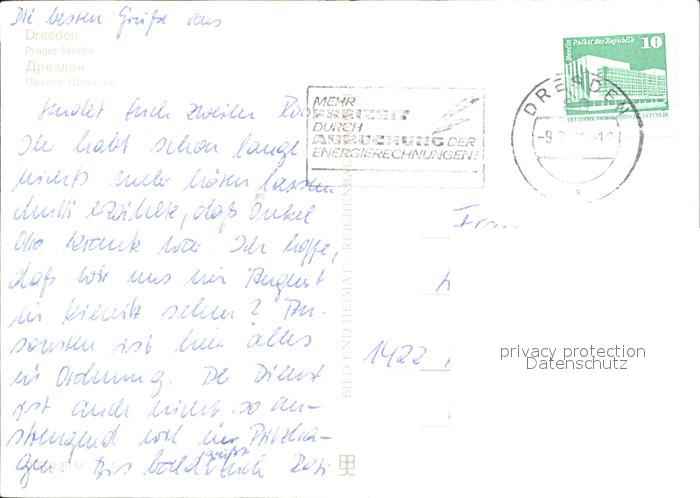 Die besten Grüße aus
Dresden
Prager Straße
Дрезден
Прагер Штрассе
sendet Euch zweien
Ihr habt schon lange
nichts mehr hören lassen
Mutti erzählte, daß Onkel
Otto krank war. Ich hoffe,
daß wir uns im August
in Kienitz sehen? An-
sonsten ist hier alles
in Ordnung. Der Dienst
ist auch nicht so an-
strengend wie in
gen. Bis bald
grüßt
Euch Rosi
MEHR
FREIZEIT
DURCH
ABBUCHUNG DER
ENERGIERECHNUNGEN!
Berlin Palast der Republik
10
DEUTSCHE DEMOKRATISCHE REPUBLIK
DRESDEN
Frau
1422
BILD UND HEIMAT REICHENBACH
privacy protection
Datenschutz